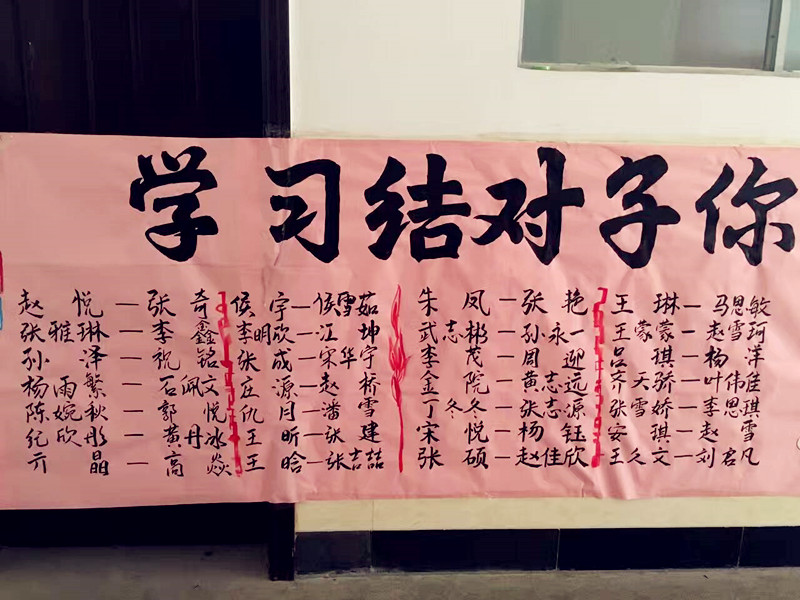 学习结对子你
赵悦一张奇 侯宇一侯雪茹 朱凤一张艳 王琳一马恩敏
张雅琳一李鑫 李明欣一江坤 武志彬一孙永一 王蒙蒙一赵雪珂
孙泽一祝铭 张成一宋华宇 李茂一周迎 吕琪一杨洋
杨雨繁一石佩文 庄源一赵桥 金院一黄志远 齐天骄一叶伟佳
陈婉秋一郭悦 仇月一潘雪 丁冬冬一张志源 张雪娇一李思琪
纪欣彤一黄丹冰 王昕一张建 宋悦一杨钰 安琪一赵雪
亓晶一高焱 王晗一张喆 张硕一赵佳欣 王久文一刘君凡